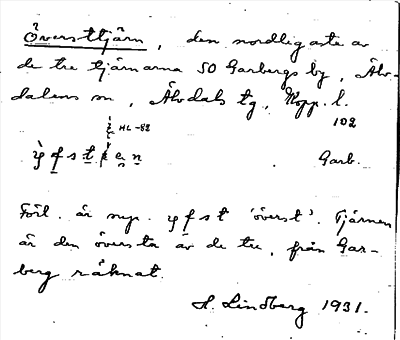 Översttjärn, den nordligaste av
de tre tjärnarna SO Garbergs by, Älv-
dalens sn, Älvdals tg, Kopp. l.
102
HL-82
Garb.
Förl. är superl. yfst 'överst'. Tjärnen
är den översta av de tre, från Gar-
berg räknat.
H. Lindberg 1931.